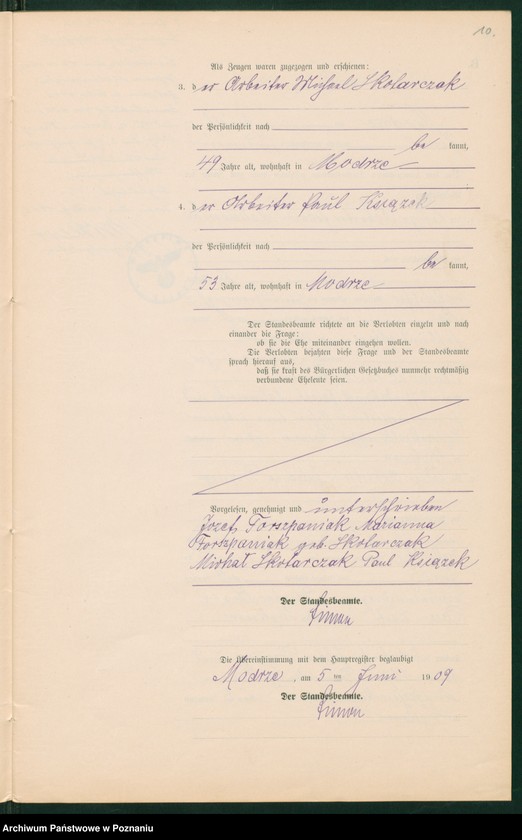 10.
Als Zeugen waren zugezogen und erschienen:
3. der Arbeiter Michael Skolarczak
der Persönlichkeit nach
be kannt,
49 Jahre alt, wohnhaft in Modrze
4. der Arbeiter Paul Książek
der Persönlichkeit nach
be kannt,
53 Jahre alt, wohnhaft in Modrze
Der Standesbeamte richtete an die Verlobten einzeln und nach
einander die Frage:
ob sie die Ehe miteinander eingehen wollen.
Die Verlobten bejahten diese Frage und der Standesbeamte
sprach hierauf aus,
daß sie kraft des Bürgerlichen Gesetzbuches nunmehr rechtmäßig
verbundene Eheleute seien.
Vorgelesen, genehmigt und unterschrieben
Józef Torszpaniak Marianna
Torszpaniak geb. Skolarczak
Michał Skolarczak Paul Książek
Der Standesbeamte.
Simon
Die Übereinstimmung mit dem Hauptregister beglaubigt
Modrze, am 5 ten Juni 1909
Der Standesbeamte.
Simon
Archiwum Państwowe w Poznaniu